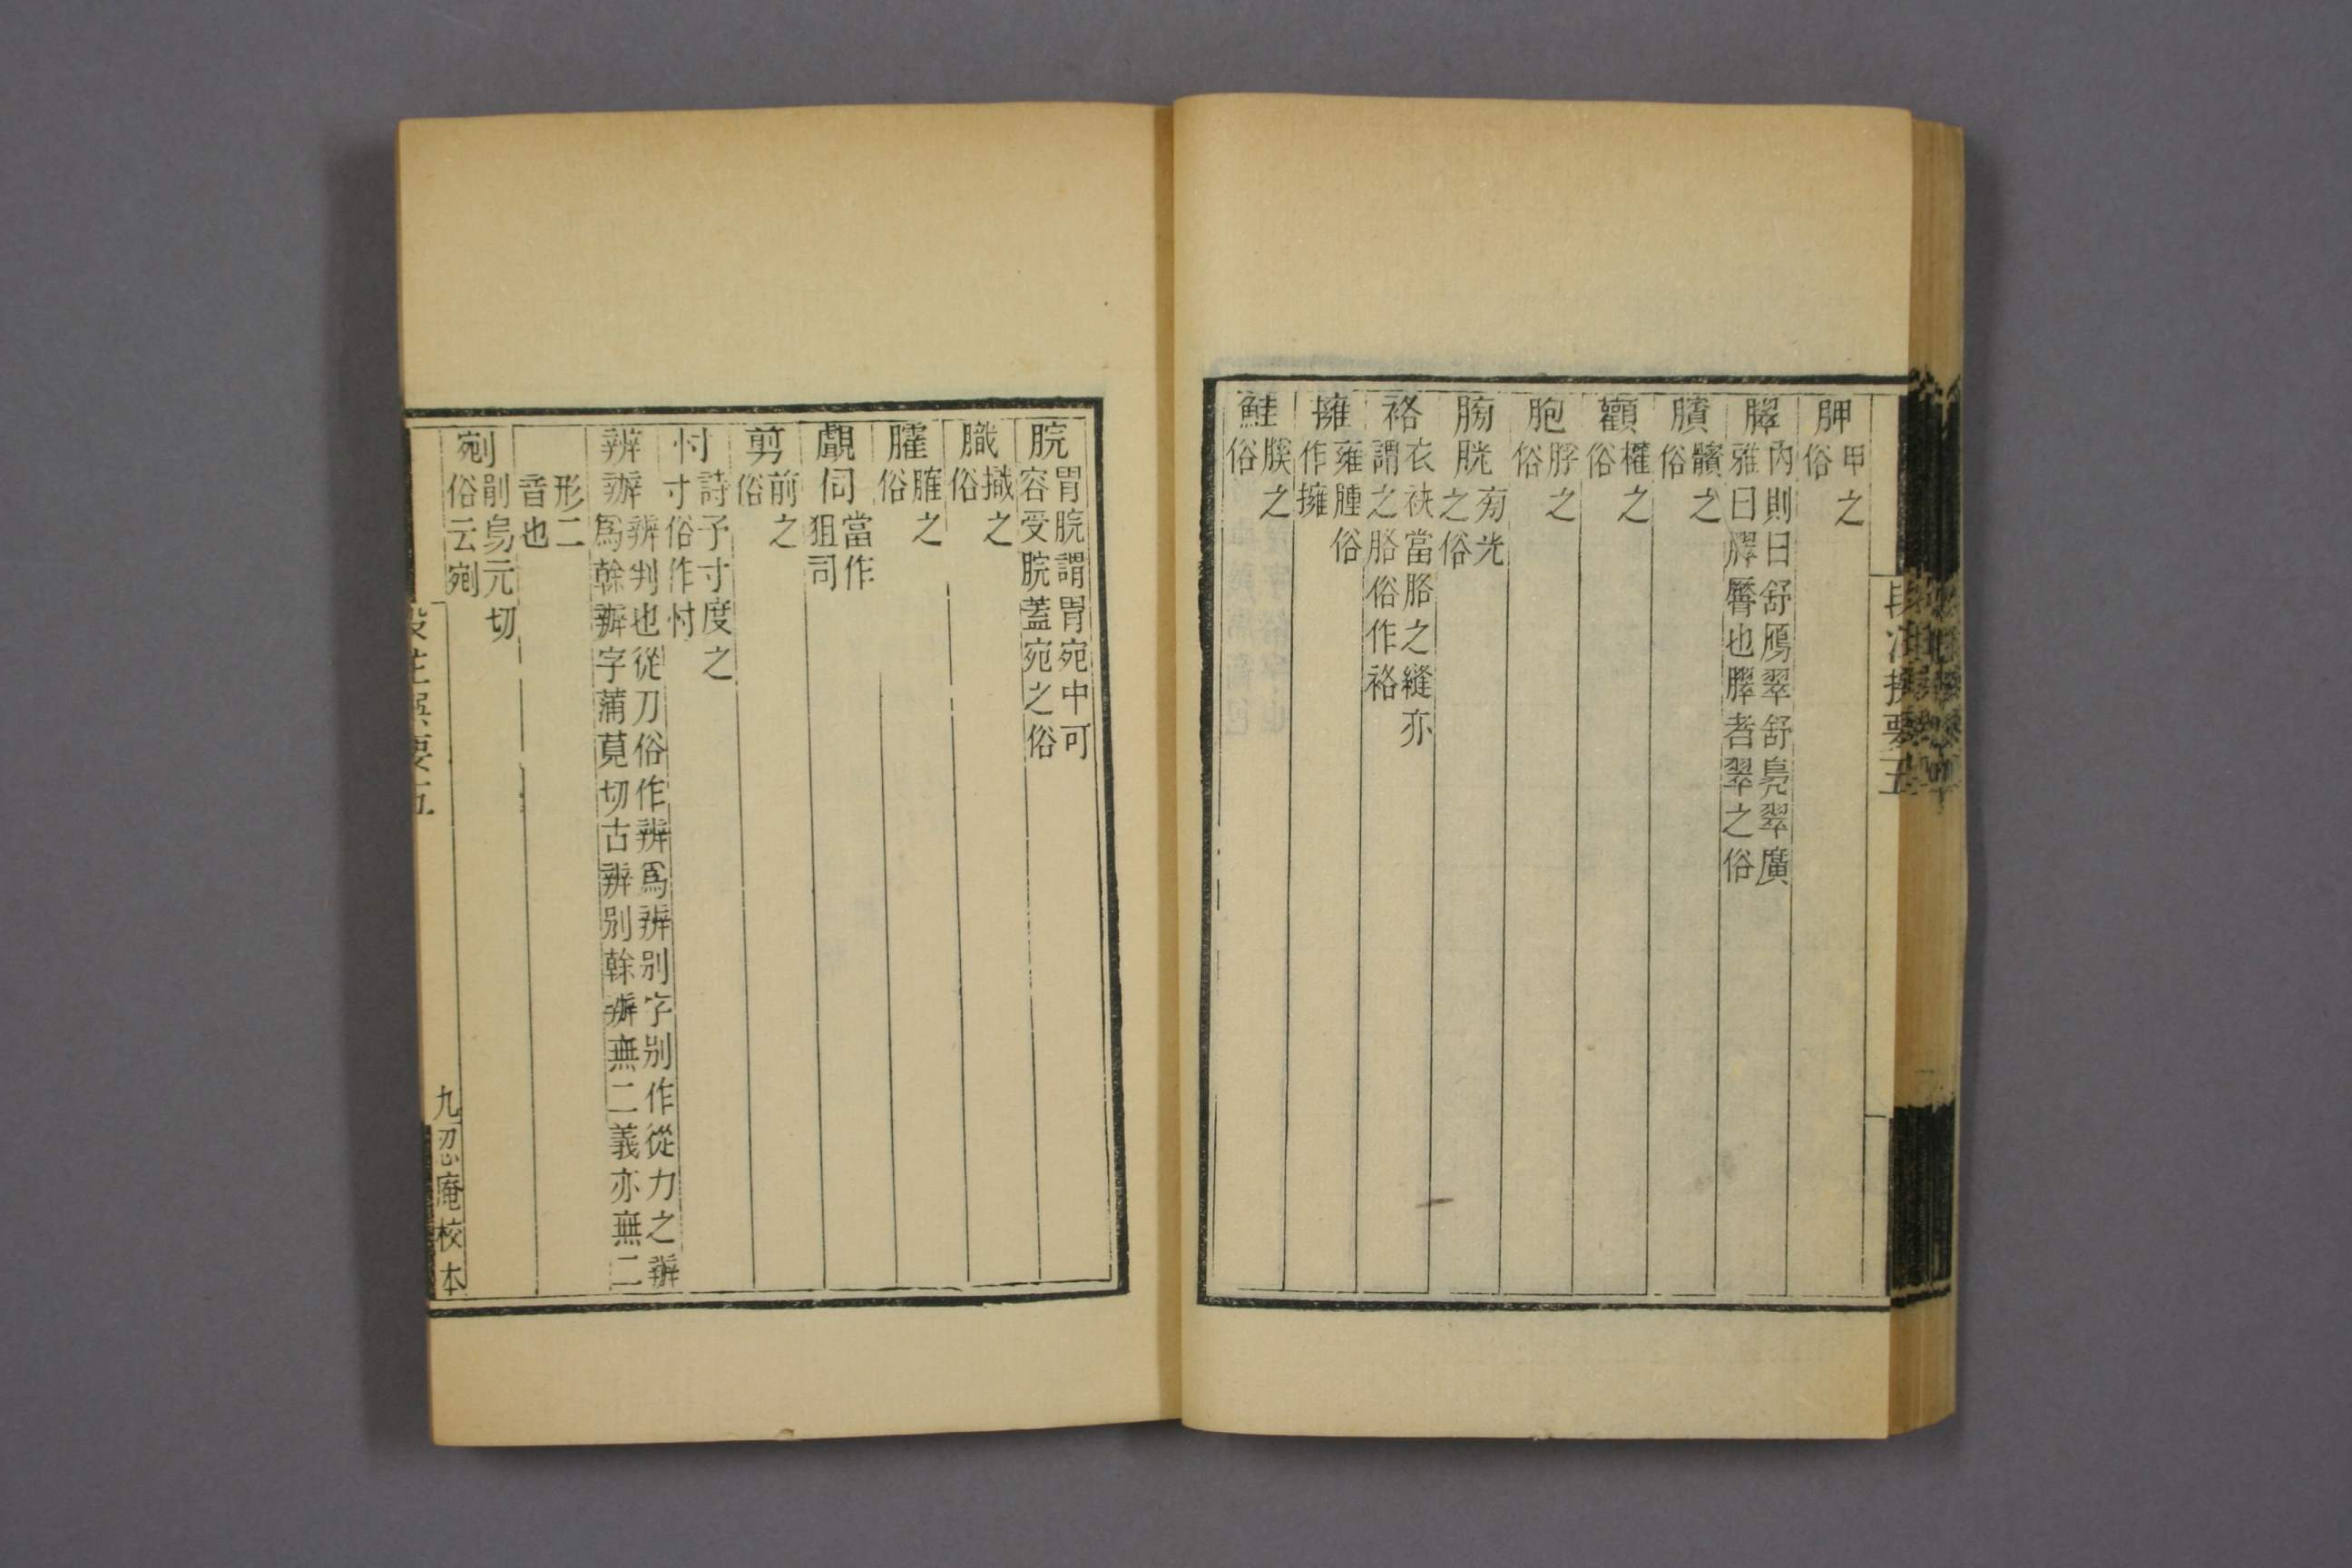 胛甲之俗
臎內則曰舒鴈翠舒鳧翠廣雅曰髁臀也臎者翠之俗
臏髕之俗
顴權之俗
胞脬之俗
膀胱㫄光之俗
袼衣袂當胳之縫亦謂之胳俗作袼
擁雍腫俗作擁
鮭膎之俗
脘胃脘謂胃宛中可容受脘蓋宛之俗
膱㨖之俗
臛臛之俗
覰伺當作狙司
剪前之俗
忖詩予寸度之寸俗作忖
辨辦辨判也從刀俗作辨爲辨别字别作從力之辦爲幹辦字蒲莧切古辨别幹辦無二義亦無二
形二音也
剜剈烏元切俗云剜
九
忍庵校本